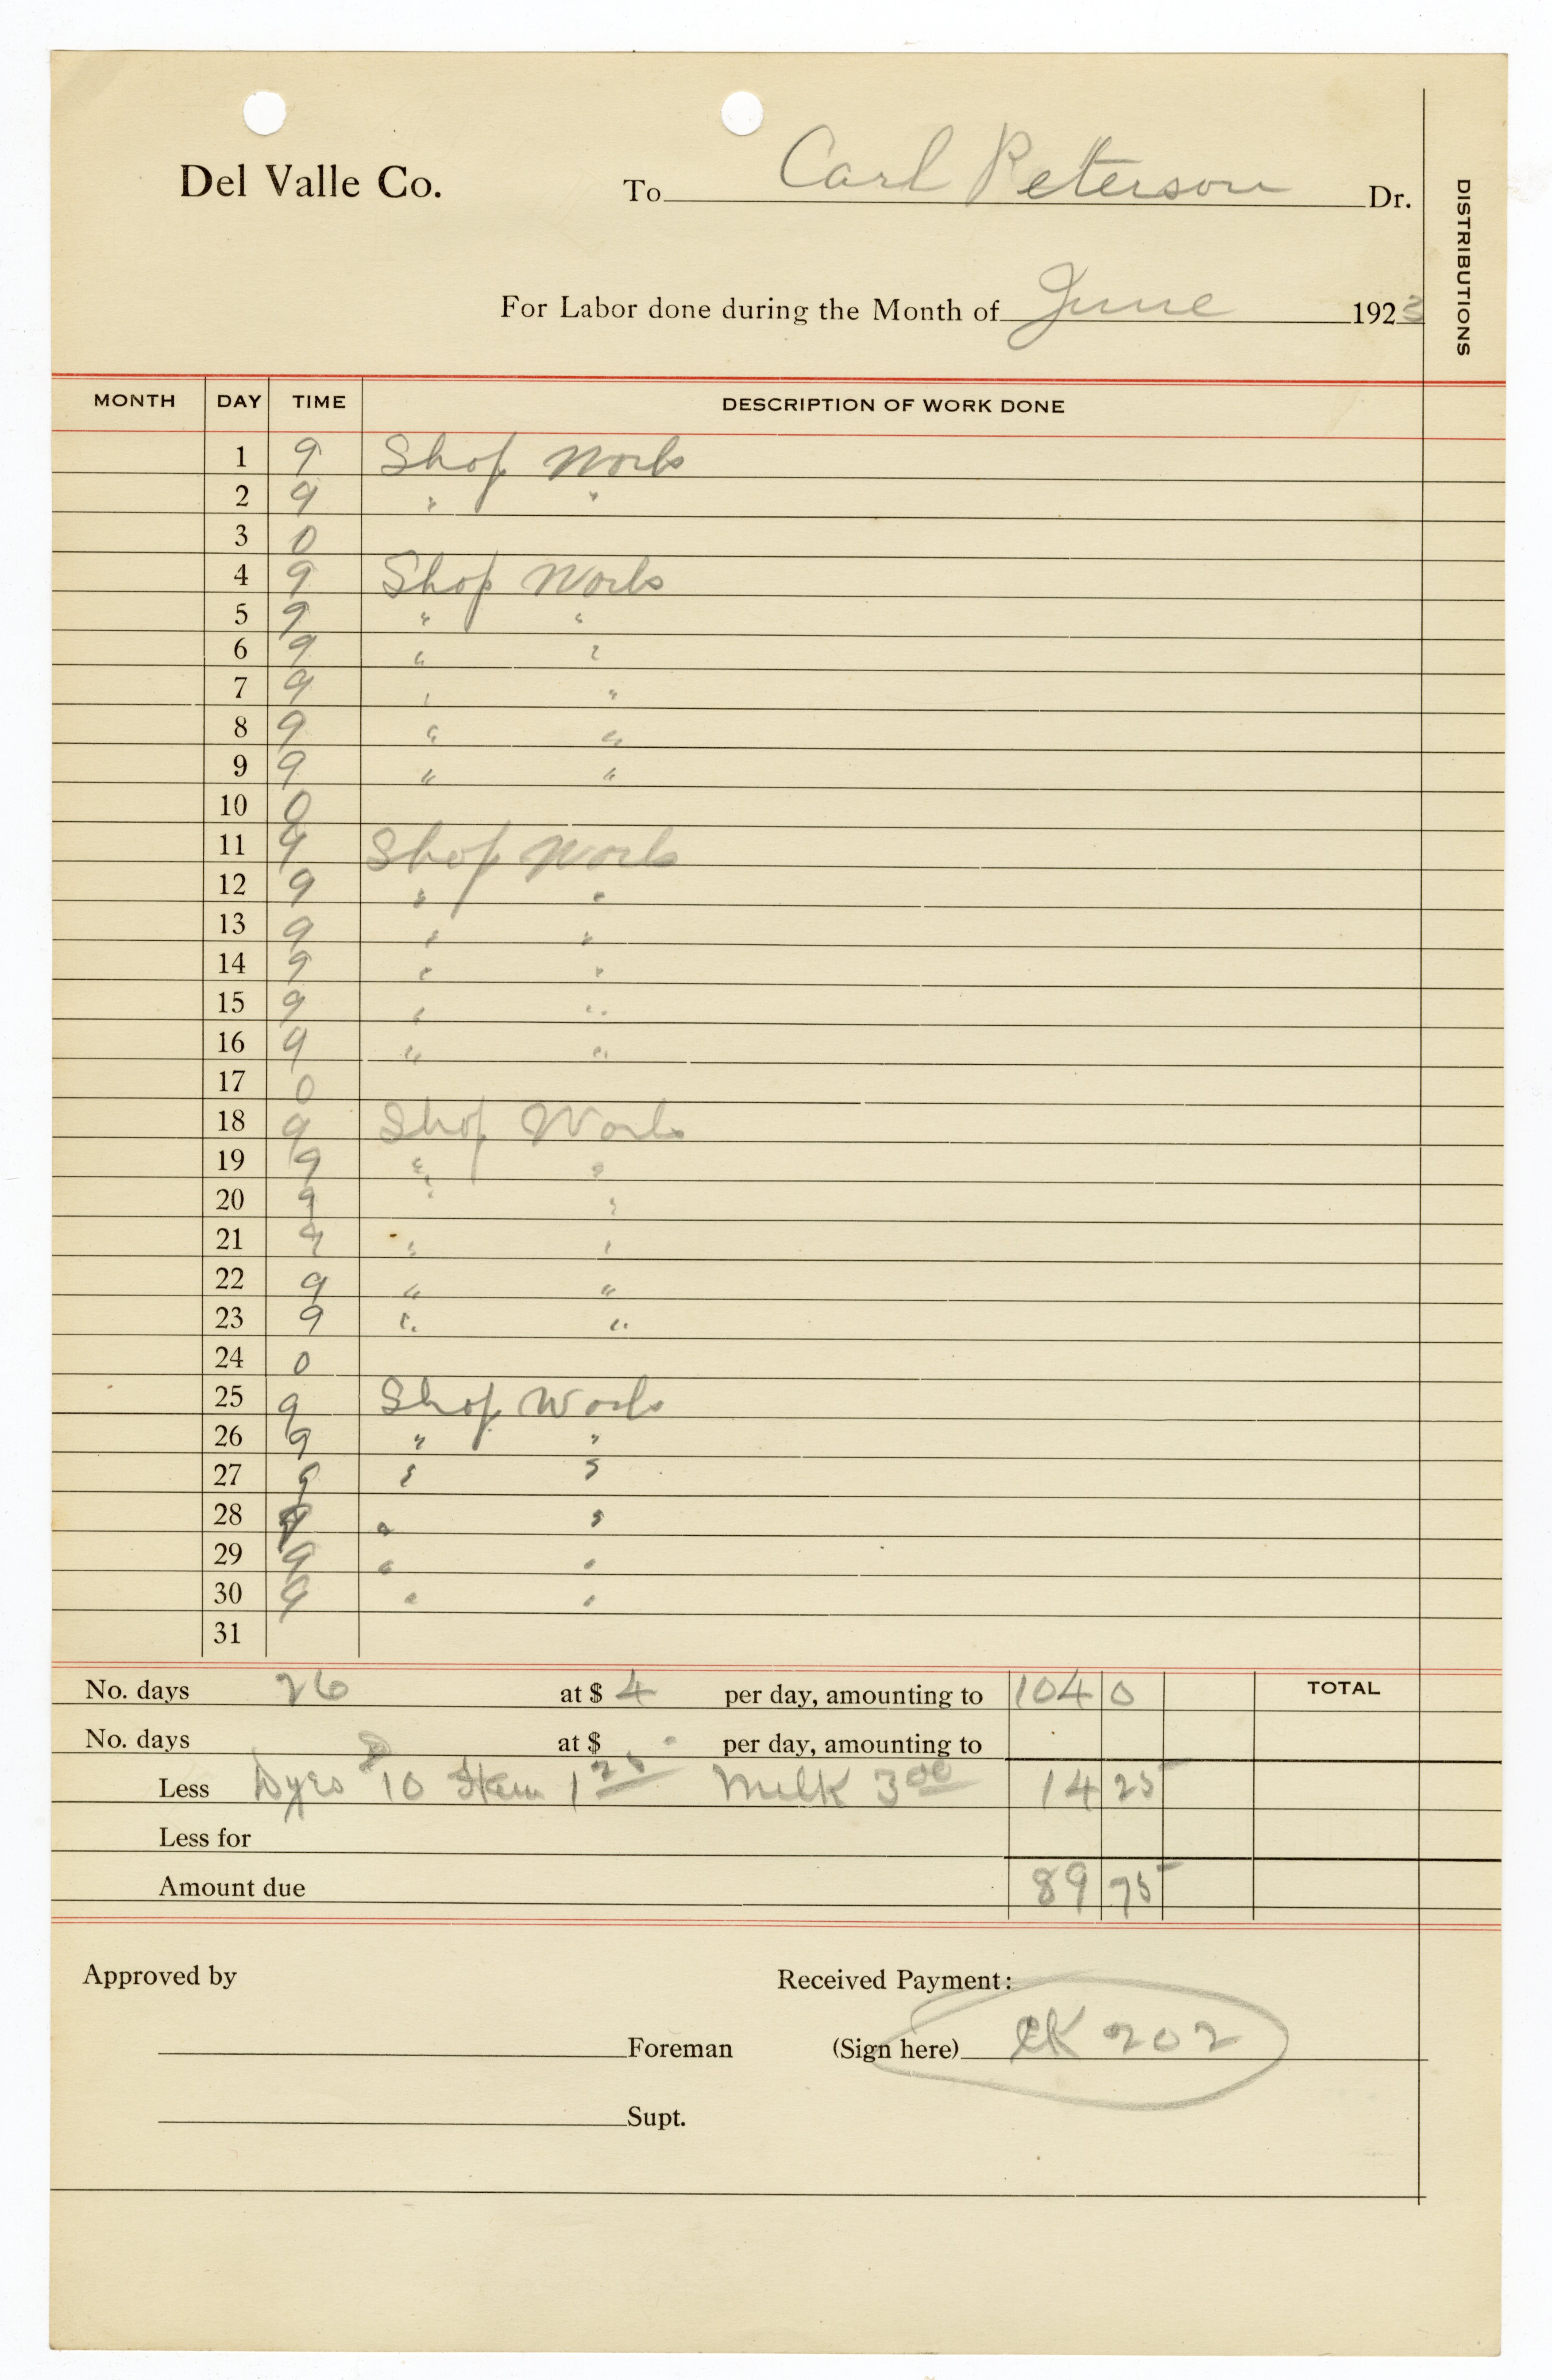 Del Valle Co.
To Carl Peterson Dr.
DISTRIBUTIONS
For Labor done during the Month of June 1923
MONTH DAY TIME DESCRIPTION OF WORK DONE
1 9 Shop Work
2 9 " "
3 0
4 9 Shop Work
5 9 " "
6 9 " "
7 9 " "
8 9 " "
9 9 " "
10 0
11 9 Shop Work
12 9 " "
13 9 " "
14 9 " "
15 9 " "
16 9 " "
17 0
18 9 Shop Work
19 9 " "
20 9 " "
21 9 " "
22 9 " "
23 9 " "
24 0
25 9 Shop Work
26 9 " "
27 9 " "
28 9 " "
29 9 " "
30 9 " "
31
No. days 26 at $ 4 per day, amounting to 104 0 TOTAL
No. days at $ per day, amounting to
Less Dyes 10 1 25 Milk 3 00 14 25
Less for
Amount due 89 75
Approved by
Received Payment:
Foreman (Sign here) CK 202
Supt.